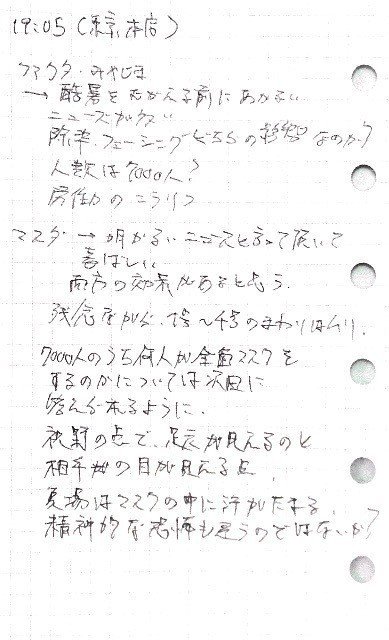 19:05 (東京本店)
ファクタ・みやじま
→ 酷暑をむかえる前にあかるい
ニュースかない
除染、フェーシングどちらの なのか?
人数は7000人?
男性かの こうりつ
マスダ → 明かるいニュースと言って頂いて
喜ばしい
両方の効果があると思う。
残念ながら、1号〜4号のまわりはムリ。
7000人のうち何人が全面マスクを
するのかについては次回に
答えられるように。
視野の点で、足元が見えるのと
相手 の目が見える点、
夏場はマスクの中に汗がたまる、
精神的な恐怖も違うのではないか?